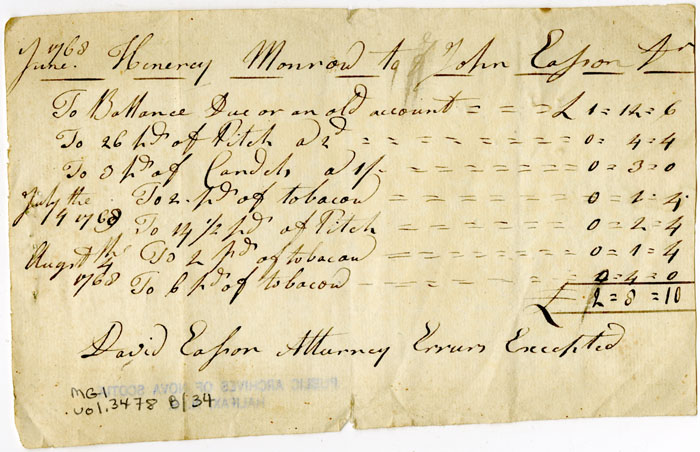 1768
June. Henerey Monrow to John Easson Dr
To Ballance Due or an old account = = = £ 1=12=6
To 26 pds of Pitch a 2d = = = = = = 0=4=4
To 3 pds of Candels a 1/- = = = = = = 0=3=0
July the To 2 pds of tobacow = = = = = = 0=1=4
4 1768 To 14 1/2 pds of Pitch = = = = = = 0=2=4
Augst the To 2 pds of tobacow = = = = = = 0=1=4
4 1768 To 6 pds of tobacow = = = = = = 0=4=0
£ 2=8=10
David Easson Atturney Errurs Excepted
PUBLIC ARCHIVES OF NOVA SCOTIA
HALIFAX
MG-1
vol.3478 B/34